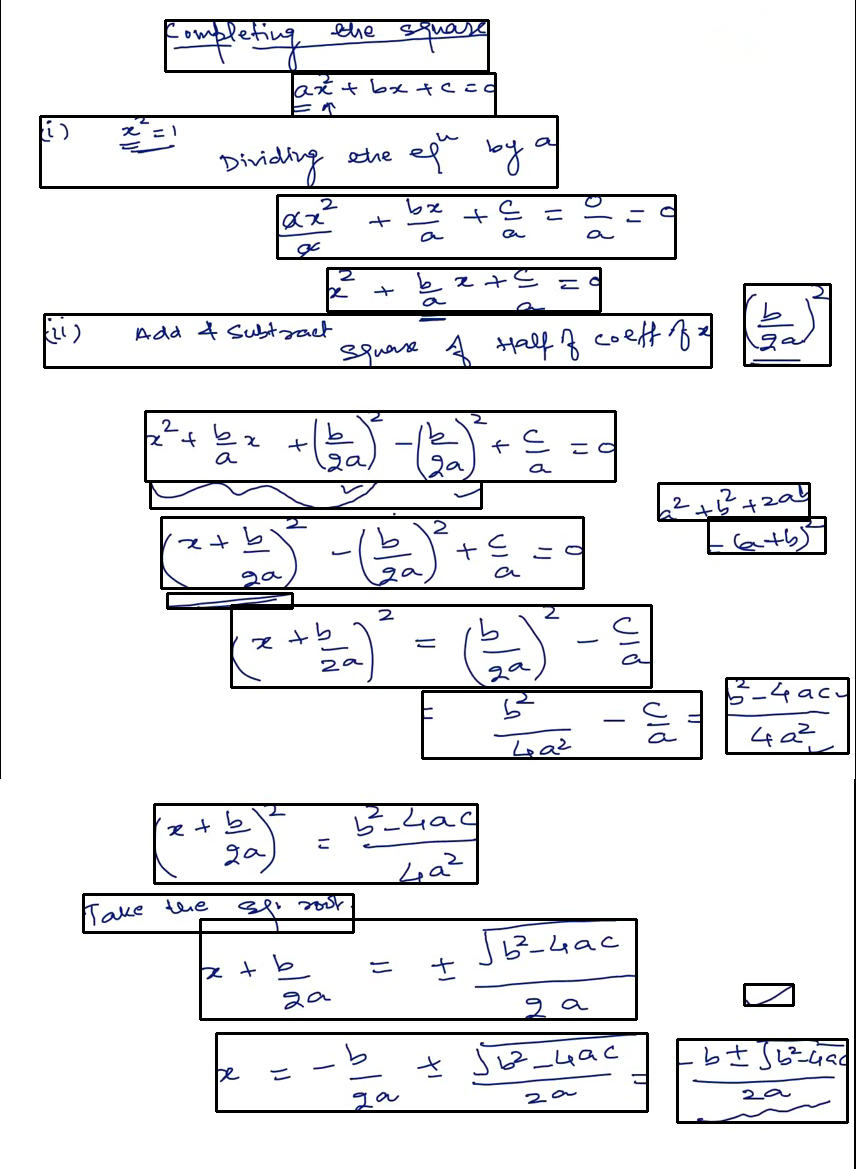 Completing the square
ax² + bx + c = 0
(i) x² = 1 Dividing the eqⁿ by a
ax²/a + bx/a + c/a = 0/a = 0
x² + b/a x + c/a = 0
(ii) Add & Subtract square of Half of coeff of x (b/2a)²
x² + b/a x + (b/2a)² - (b/2a)² + c/a = 0
a² + b² + 2ab
= (a+b)²
(x + b/2a)² - (b/2a)² + c/a = 0
(x + b/2a)² = (b/2a)² - c/a
= b²/4a² - c/a = b²-4ac/4a²
(x + b/2a)² = b²-4ac/4a²
Take the sq. root.
x + b/2a = ± √b²-4ac/2a
x = -b/2a ± √b²-4ac/2a = -b ± √b²-4ac/2a